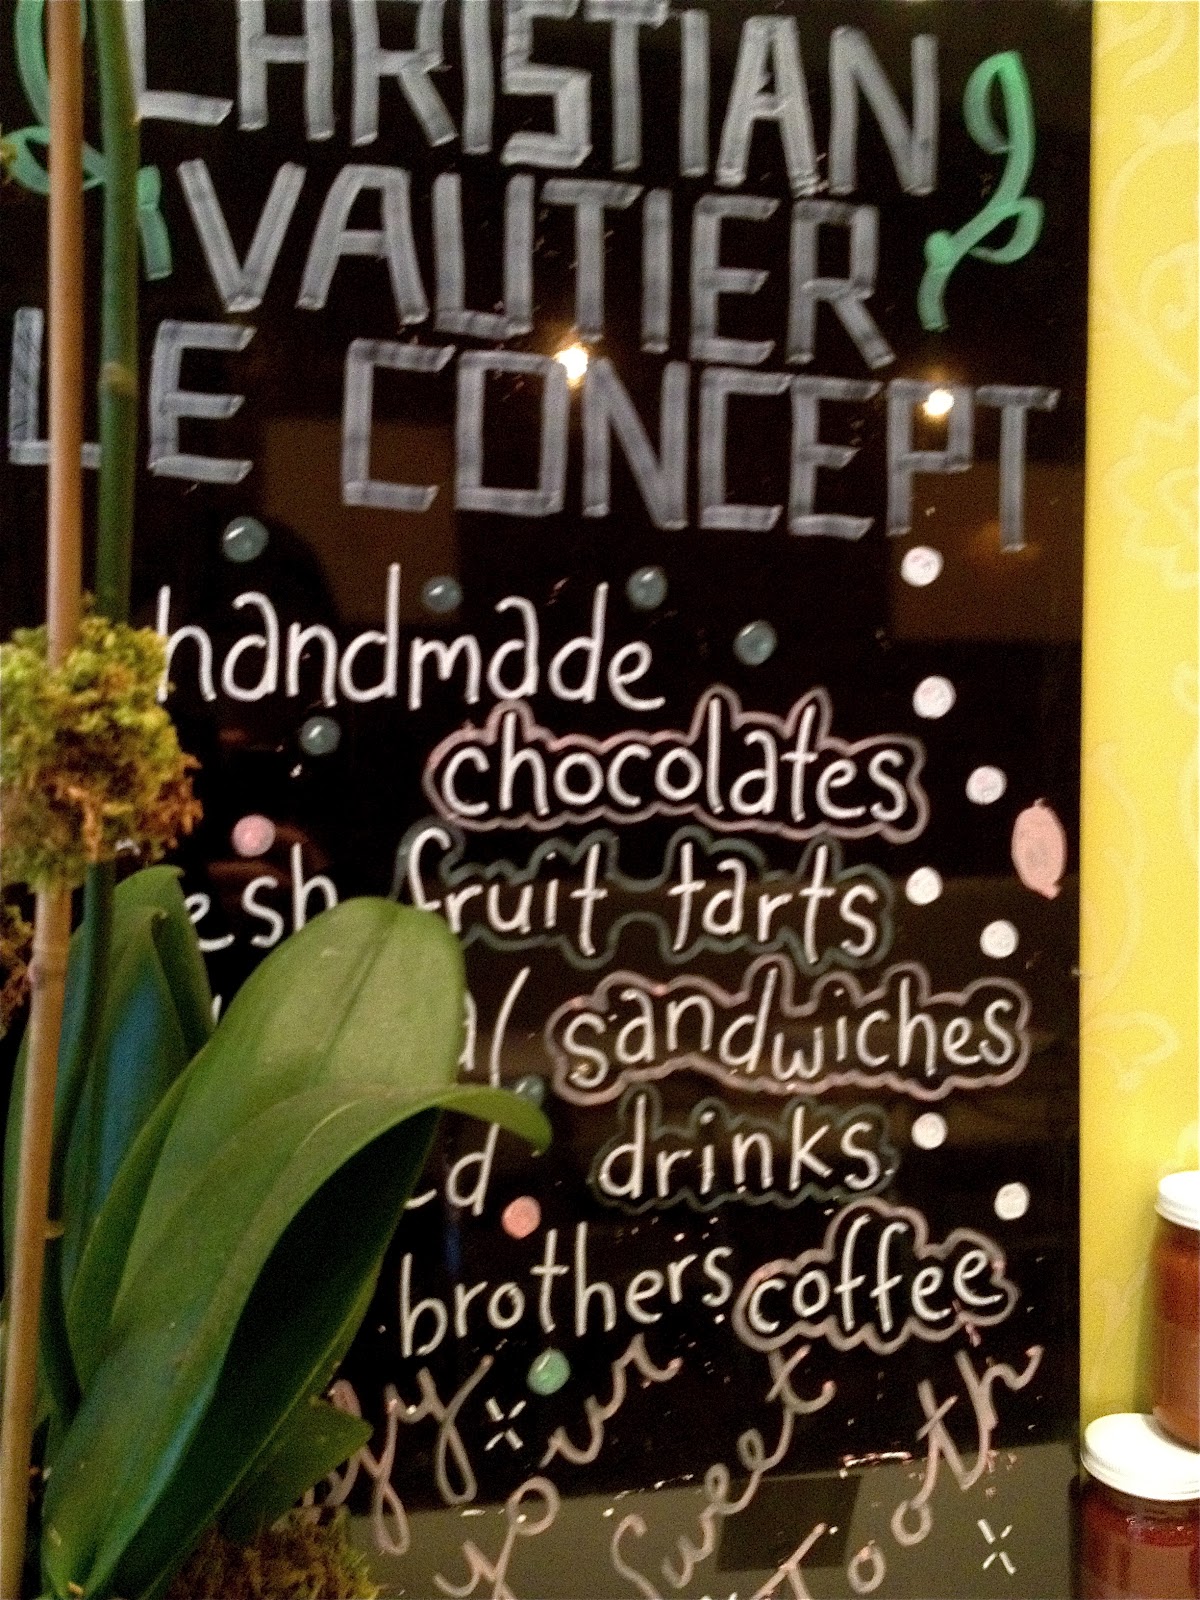 CHRISTIAN
VAUTIER
LE CONCEPT
handmade
chocolates
esh fruit tarts
sandwiches
drinks
brothers coffee
your
Sweet
Tooth